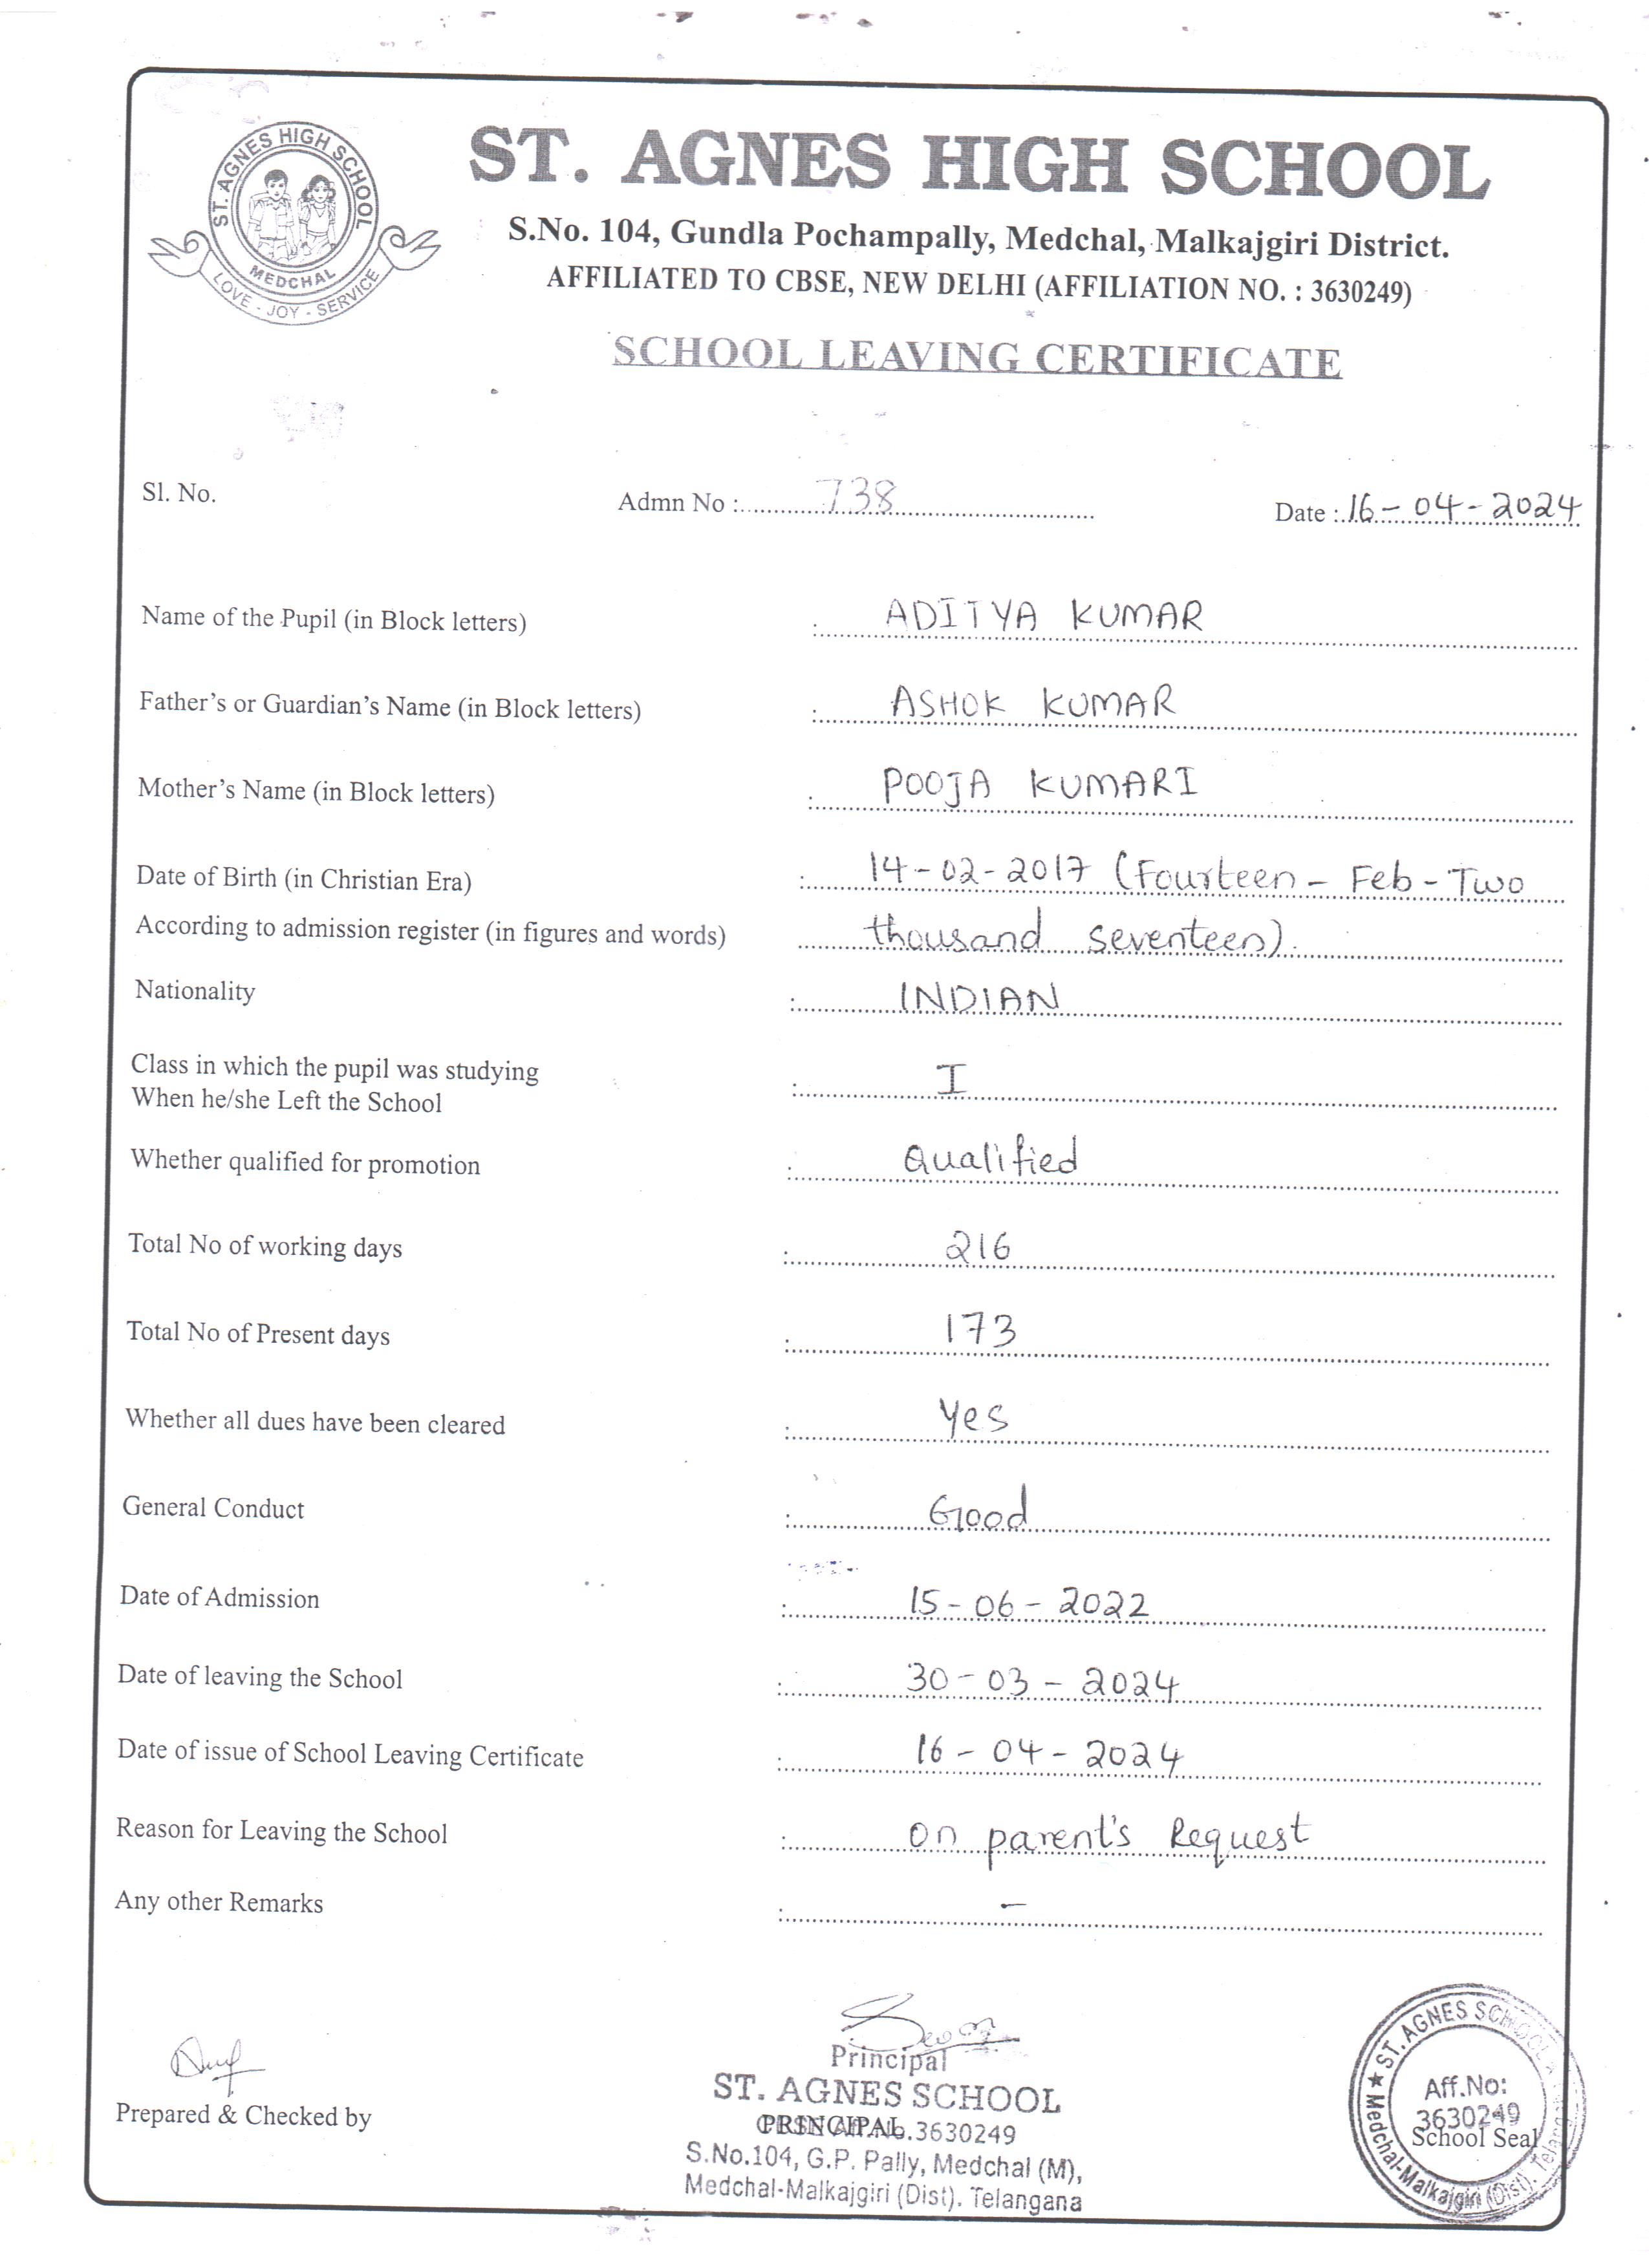 ST. AGNES HIGH SCHOOL
MEDCHAL
LOVE - JOY - SERVICE
ST. AGNES HIGH SCHOOL
S.No. 104, Gundla Pochampally, Medchal, Malkajgiri District.
AFFILIATED TO CBSE, NEW DELHI (AFFILIATION NO. : 3630249)
SCHOOL LEAVING CERTIFICATE
Sl. No. Admn No : 738 Date : 16-04-2024
Name of the Pupil (in Block letters) : ADITYA KUMAR
Father's or Guardian's Name (in Block letters) : ASHOK KUMAR
Mother's Name (in Block letters) : POOJA KUMARI
Date of Birth (in Christian Era) : 14-02-2017 (Fourteen - Feb - Two
According to admission register (in figures and words) thousand seventeen).
Nationality : INDIAN
Class in which the pupil was studying
When he/she Left the School : I
Whether qualified for promotion : Qualified
Total No of working days : 216
Total No of Present days : 173
Whether all dues have been cleared : Yes
General Conduct : Good
Date of Admission : 15-06-2022
Date of leaving the School : 30-03-2024
Date of issue of School Leaving Certificate : 16-04-2024
Reason for Leaving the School : on parent's Request
Any other Remarks : -
Prepared & Checked by
Principal
ST. AGNES SCHOOL
PRINCIPAL
3630249
S.No.104, G.P. Pally, Medchal (M),
Medchal-Malkajgiri (Dist). Telangana
ST. AGNES SCHOOL
Aff.No:
3630249
School Seal
Medchal-Malkajgiri (Dist). Telangana